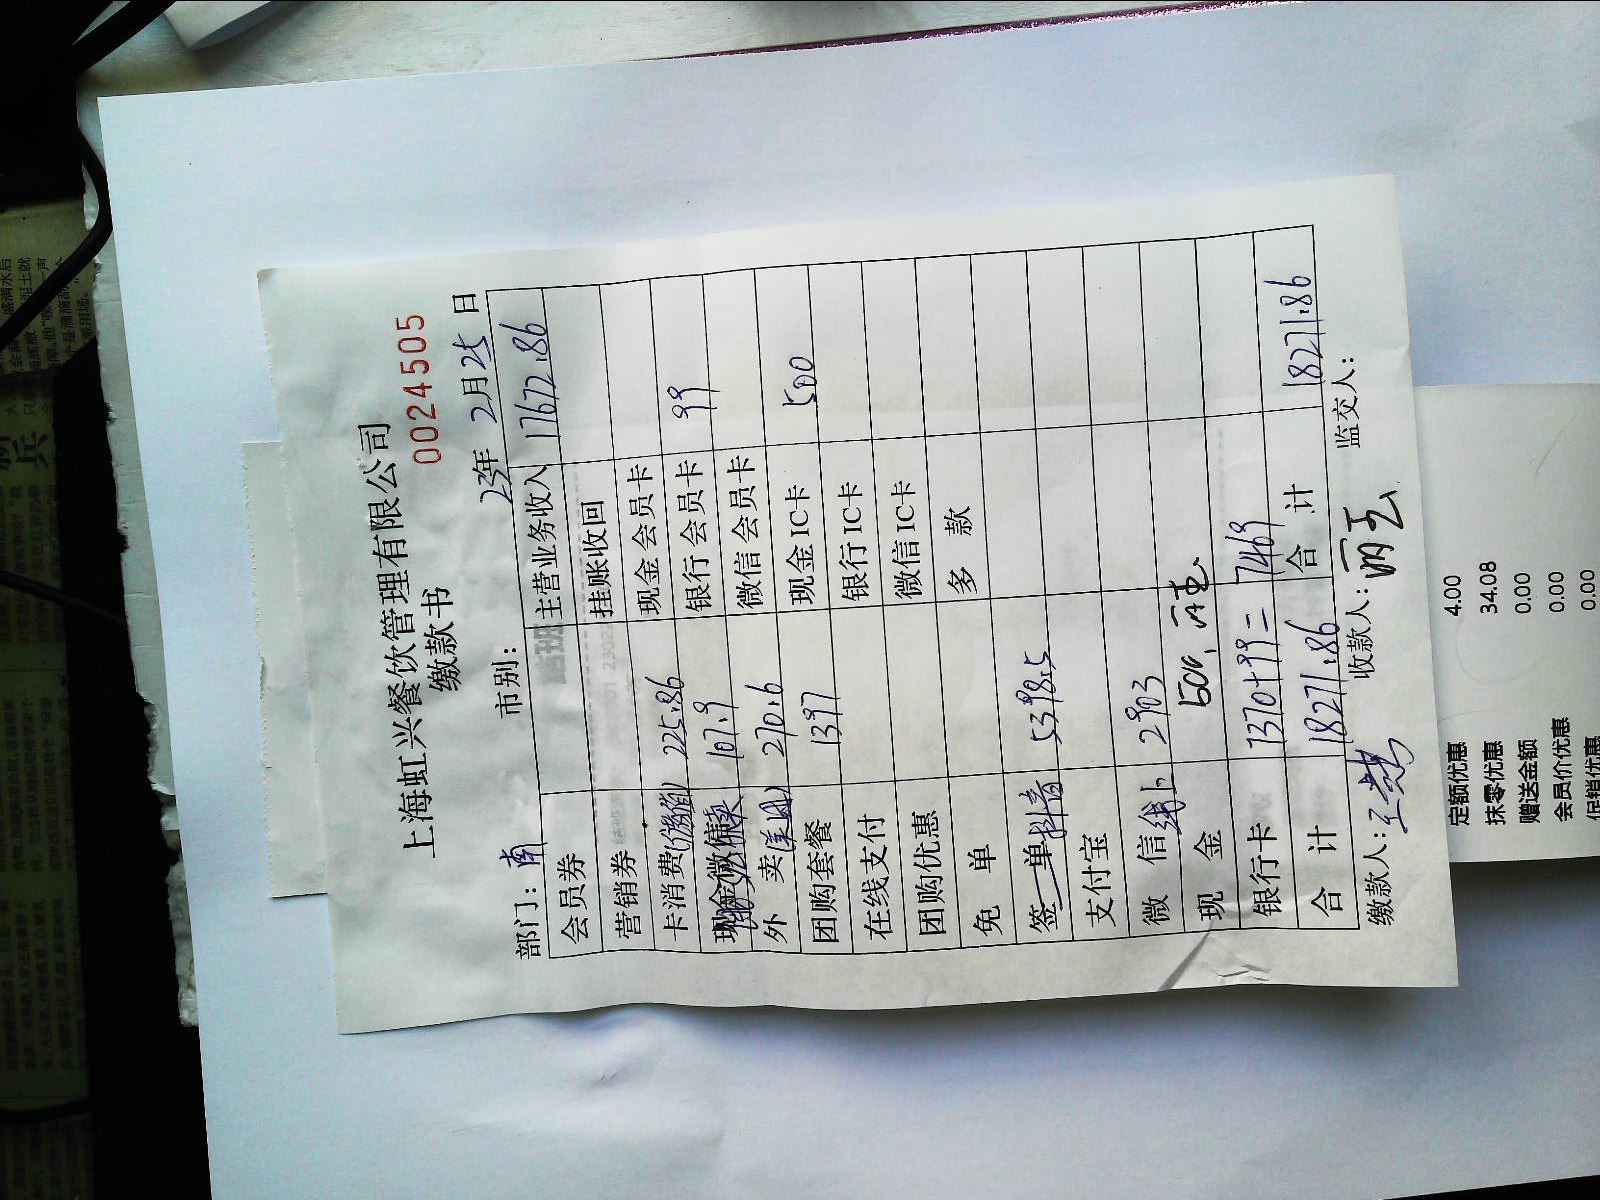 上海虹兴餐饮管理有限公司
缴款书
0024505
部门：南 市别： 23年 2月25日
会员券 主营业务收入 17672.86
营销券 挂账收回
卡消费 225.86 现金会员卡
107.9 银行会员卡 99
外 卖(美团) 270.6 微信会员卡
团购套餐 1397 现金IC卡 500
在线支付 银行IC卡
团购优惠 微信IC卡
免 单 多 款
签 单 抖音 5398.5
支付宝
微 信 线上 2903
现 金 500,
银行卡 7370+99= 7469
合 计 18271.86 合 计 18271.86
缴款人： 收款人： 监交人：
定额优惠 4.00
抹零优惠 34.08
赠送金额 0.00
会员价优惠 0.00
促销优惠 0.00